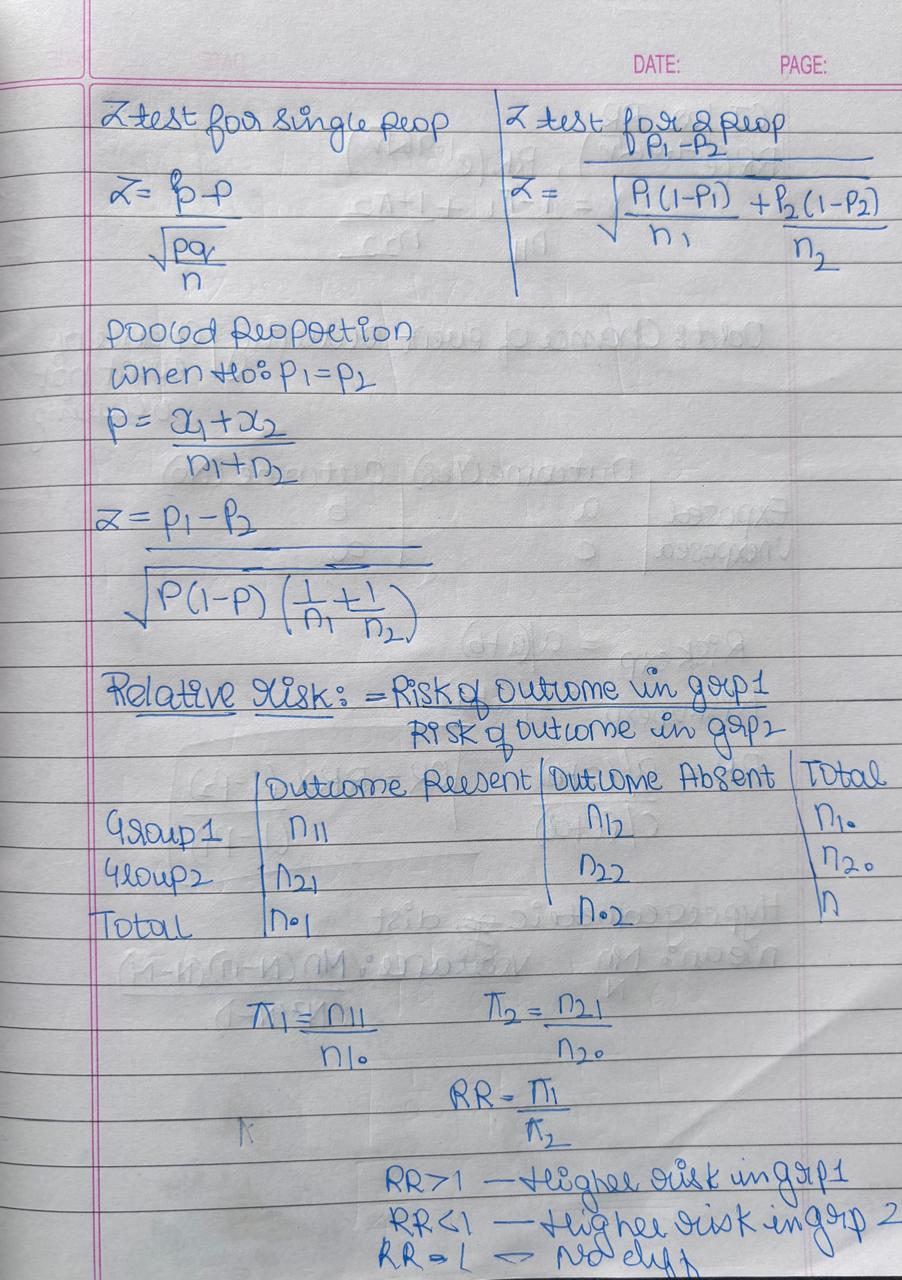 DATE: PAGE:
Z test for single prop
Z = p̂-p / √(pq/n)
Z test for 2 prop
Z = p1-p2 / √(p1(1-p1)/n1 + p2(1-p2)/n2)
pooled proportion
when H0: p1=p2
p = x1+x2 / n1+n2
Z = p1-p2 / √(p(1-p)(1/n1 + 1/n2))
Relative risk: = Risk of outcome in grp1 / Risk of outcome in grp2
Outcome Present | Outcome Absent | Total
Group1 | n11 | n12 | n1.
Group2 | n21 | n22 | n2.
Total | n.1 | n.2 | n
π1 = n11/n1. π2 = n21/n2.
RR = π1/π2
RR>1 — Higher risk in grp1
RR<1 — Higher risk in grp 2
RR=1 — No diff